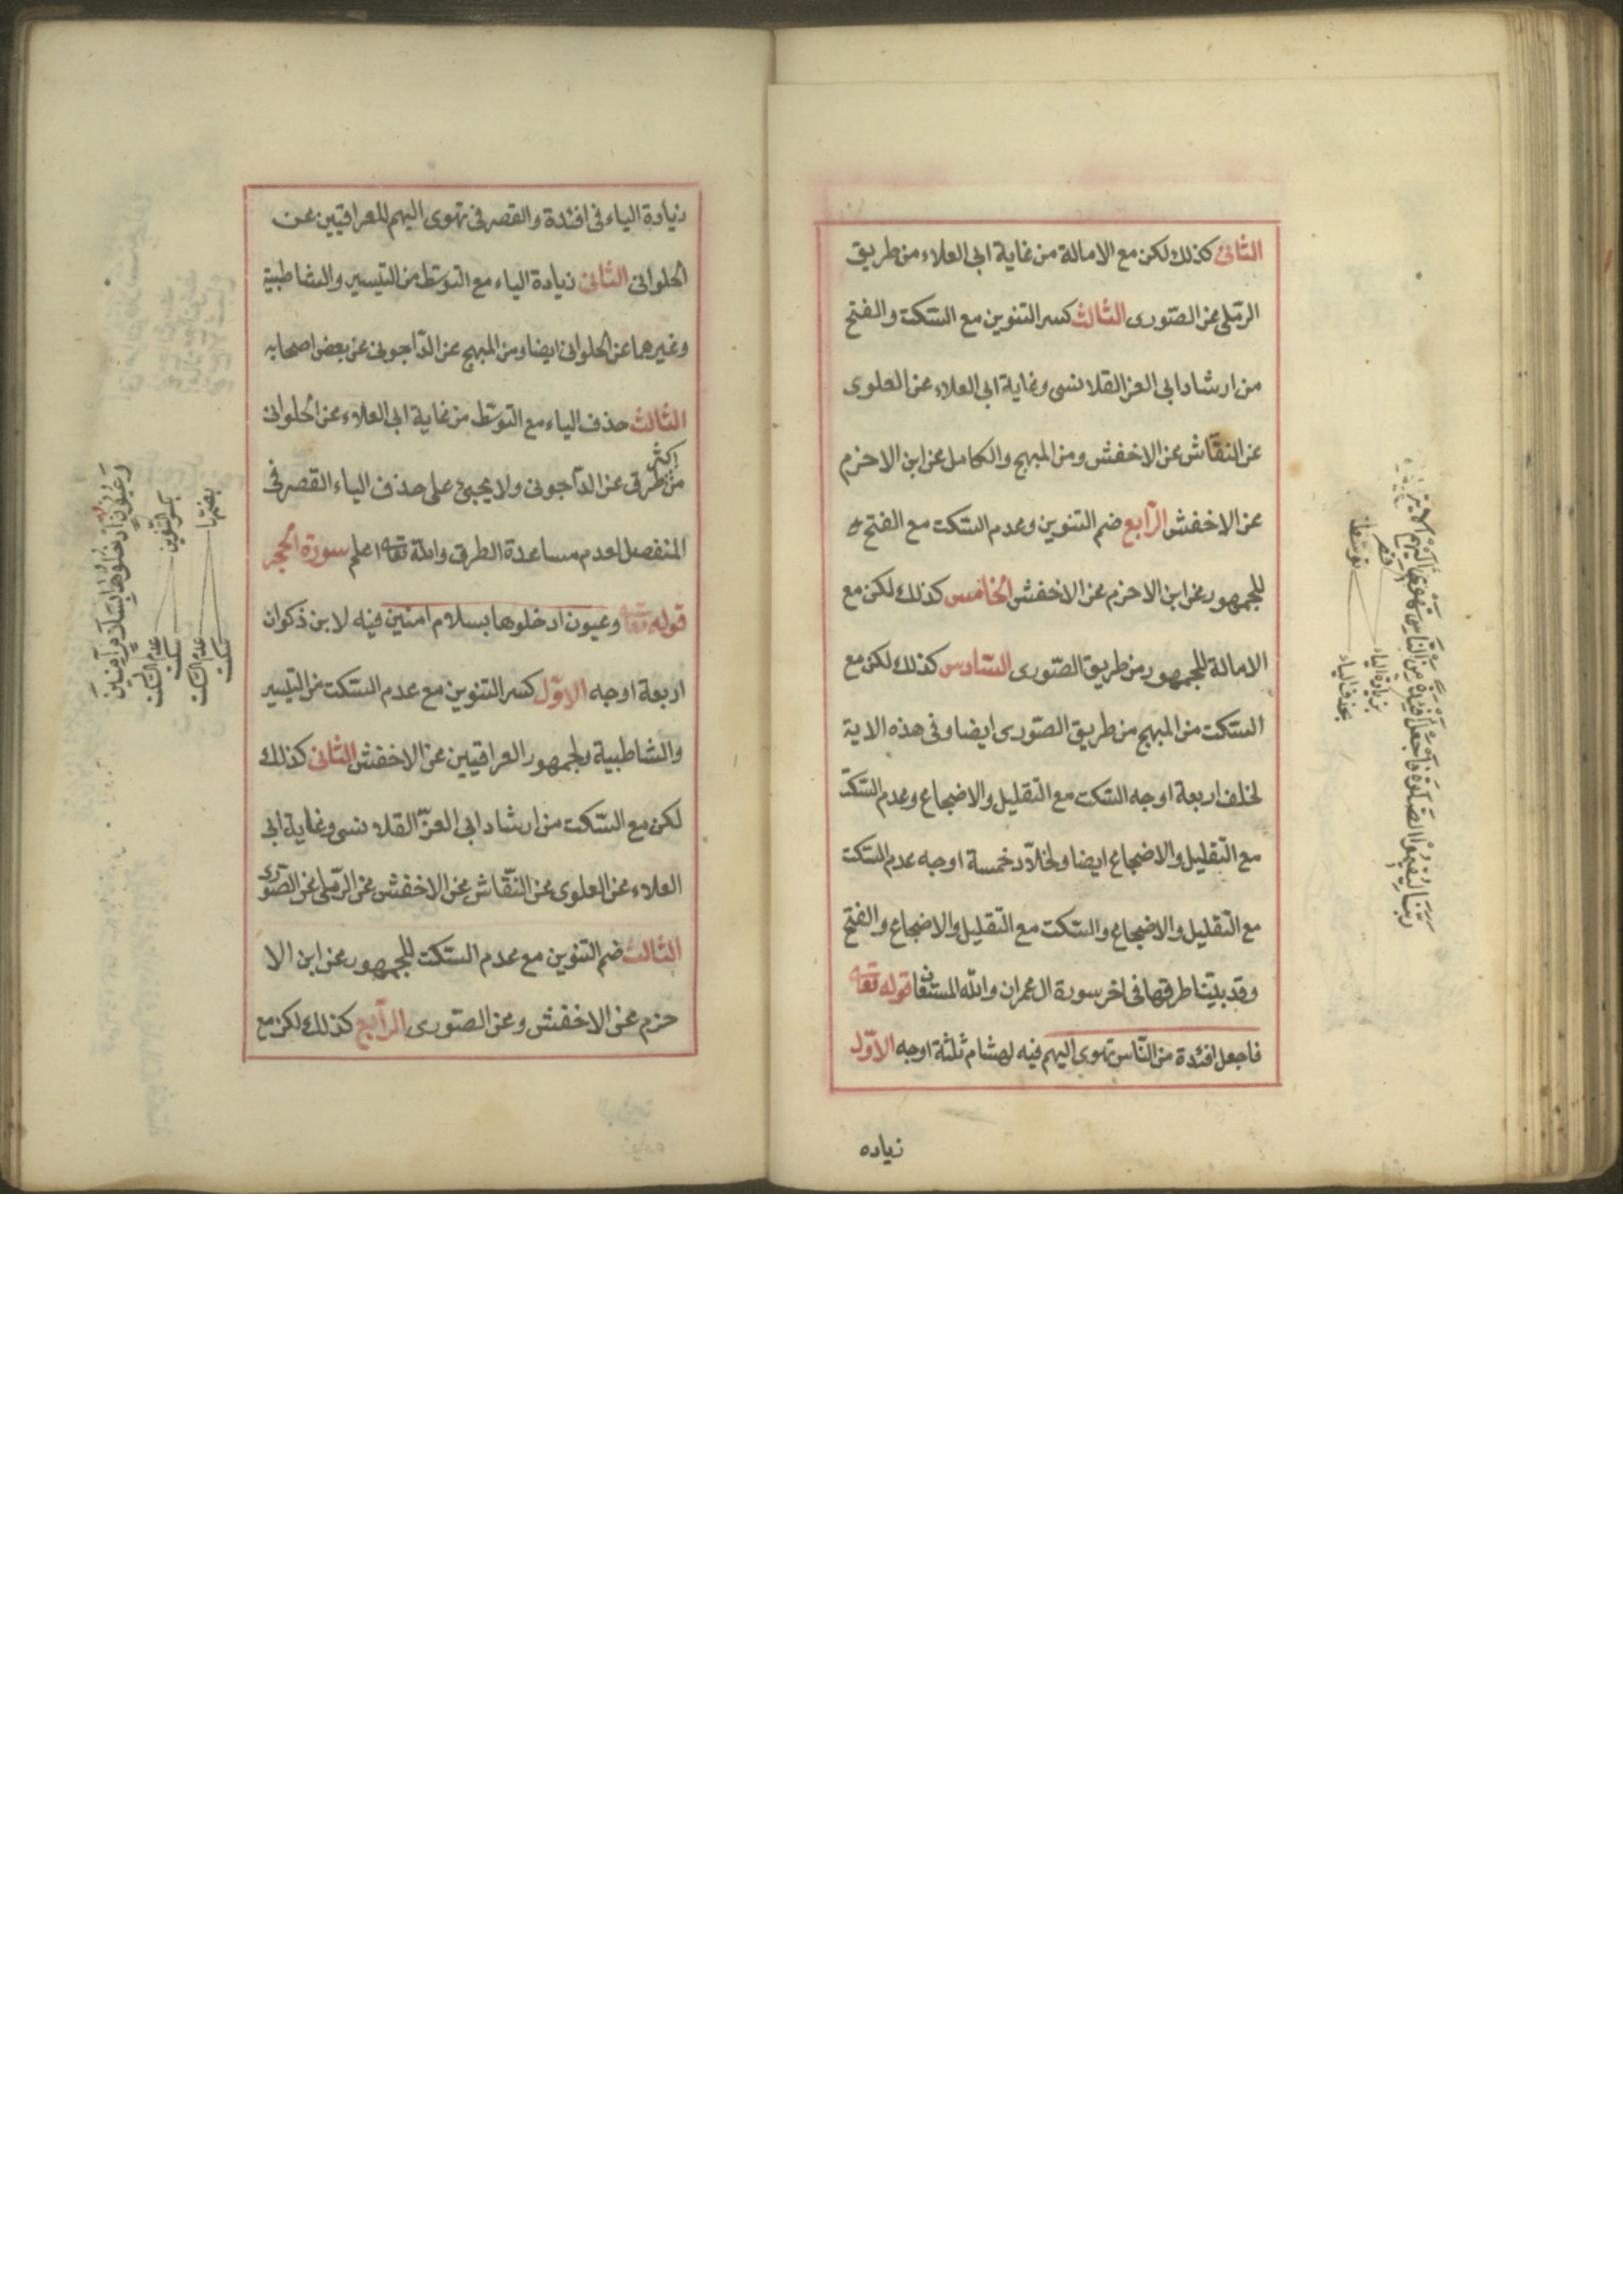 الثانى كذلك لكن مع الامالة من غاية ابى العلاء من طريق
الرملى عن الصورى الثالث كسر التنوين مع السكت والفتح
من ارشاد ابى العز القلانسى وغاية ابى العلاء عن العلوى
عن النقاش عن الاخفش ومن المبهج والكامل عن ابن الاخرم
عن الاخفش الرابع ضم التنوين وعدم السكت مع الفتح
للجمهور عن ابن الاخرم عن الاخفش الخامس كذلك لكن مع
الامالة للجمهور من طريق الصورى السادس كذلك لكن مع
السكت من المبهج من طريق الصورى ايضا وفى هذه الاية
لخلف اربعة اوجه السكت مع التقليل والاضجاع وعدم السكت
مع التقليل والاضجاع ايضا ولخلاد خمسة اوجه عدم السكت
مع التقليل والاضجاع والسكت مع التقليل والاضجاع والفتح
وقد بينا طرقها فى اخر سورة ال عمران والله المستعان قوله تعالى
فاجعل افئدة من الناس تهوى اليهم فيه لهشام ثلثة اوجه الاول
زياده
ربنا ليقيموا الصلوة فاجعل افئدة من الناس تهوى اليهم
قصر
توسط
بزيادة الياء
بحذف الياء
زيادة الياء فى افئدة والقصر فى تهوى اليهم للعراقيين عن
الحلوانى الثانى زيادة الياء مع التوسط من التيسير والشاطبية
وغيرهما عن الحلوانى ايضا ومن المبهج عن الداجونى عن بعض اصحابه
الثالث حذف الياء مع التوسط من غاية ابى العلاء عن الحلوانى
من اكثر طرق عن الداجونى ولا يجيئ على حذف الياء القصر فى
المنفصل لعدم مساعدة الطرق والله تعالى اعلم سورة الحجر
قوله تعالى وعيون ادخلوها بسلام امنين فيه لابن ذكوان
اربعة اوجه الاول كسر التنوين مع عدم السكت من التيسير
والشاطبية ولجمهور العراقيين عن الاخفش الثانى كذلك
لكن مع السكت من ارشاد ابى العز القلانسى وغاية ابى
العلاء عن العلوى عن النقاش عن الاخفش عن الرملى عن الصورى
الثالث ضم التنوين مع عدم السكت للجمهور عن ابن الا
خرم عن الاخفش وعن الصورى الرابع كذلك لكن مع
وعيون ادخلوها بسلام آمنين
بكسر التنوين
بضمها
عدم السكت
سكت
عدم السكت
سكت